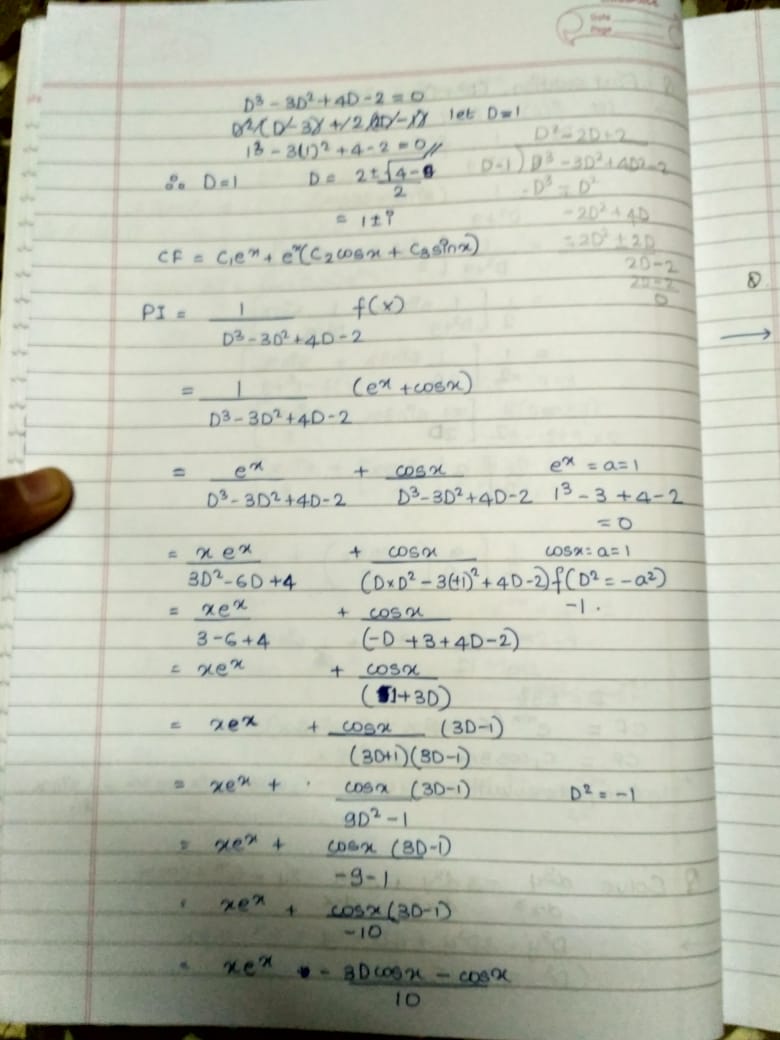 Date
Page
D³ - 3D² + 4D - 2 = 0
let D=1
1³ - 3(1)² + 4 - 2 = 0 //
D² - 2D + 2
D-1) D³ - 3D² + 4D - 2
- D³ = D²
- 2D² + 4D
= 2D² ± 2D
2D - 2
2D = 2
0
∴ D=1 D = 2 ± √4-8 / 2
= 1 ± i
CF = C₁eˣ + eˣ(C₂cosx + C₃sinx)
PI = 1 / D³ - 3D² + 4D - 2 f(x)
= 1 / D³ - 3D² + 4D - 2 (eˣ + cosx)
= eˣ / D³ - 3D² + 4D - 2 + cosx / D³ - 3D² + 4D - 2
eˣ = a = 1
1³ - 3 + 4 - 2
= 0
= x eˣ / 3D² - 6D + 4 + cosx / (D×D² - 3(-1)² + 4D - 2)
cosx = a = 1
f(D² = -a²)
-1.
= xeˣ / 3 - 6 + 4 + cosx / (-D + 3 + 4D - 2)
= xeˣ + cosx / (1 + 3D)
= xeˣ + cosx / (3D+1)(3D-1) (3D-1)
= xeˣ + cosx (3D-1) / 9D² - 1 D² = -1
= xeˣ + cosx (3D-1) / -9-1
xeˣ + cosx (3D-1) / -10
= xeˣ - 3Dcosx - cosx / 10
Q.
→